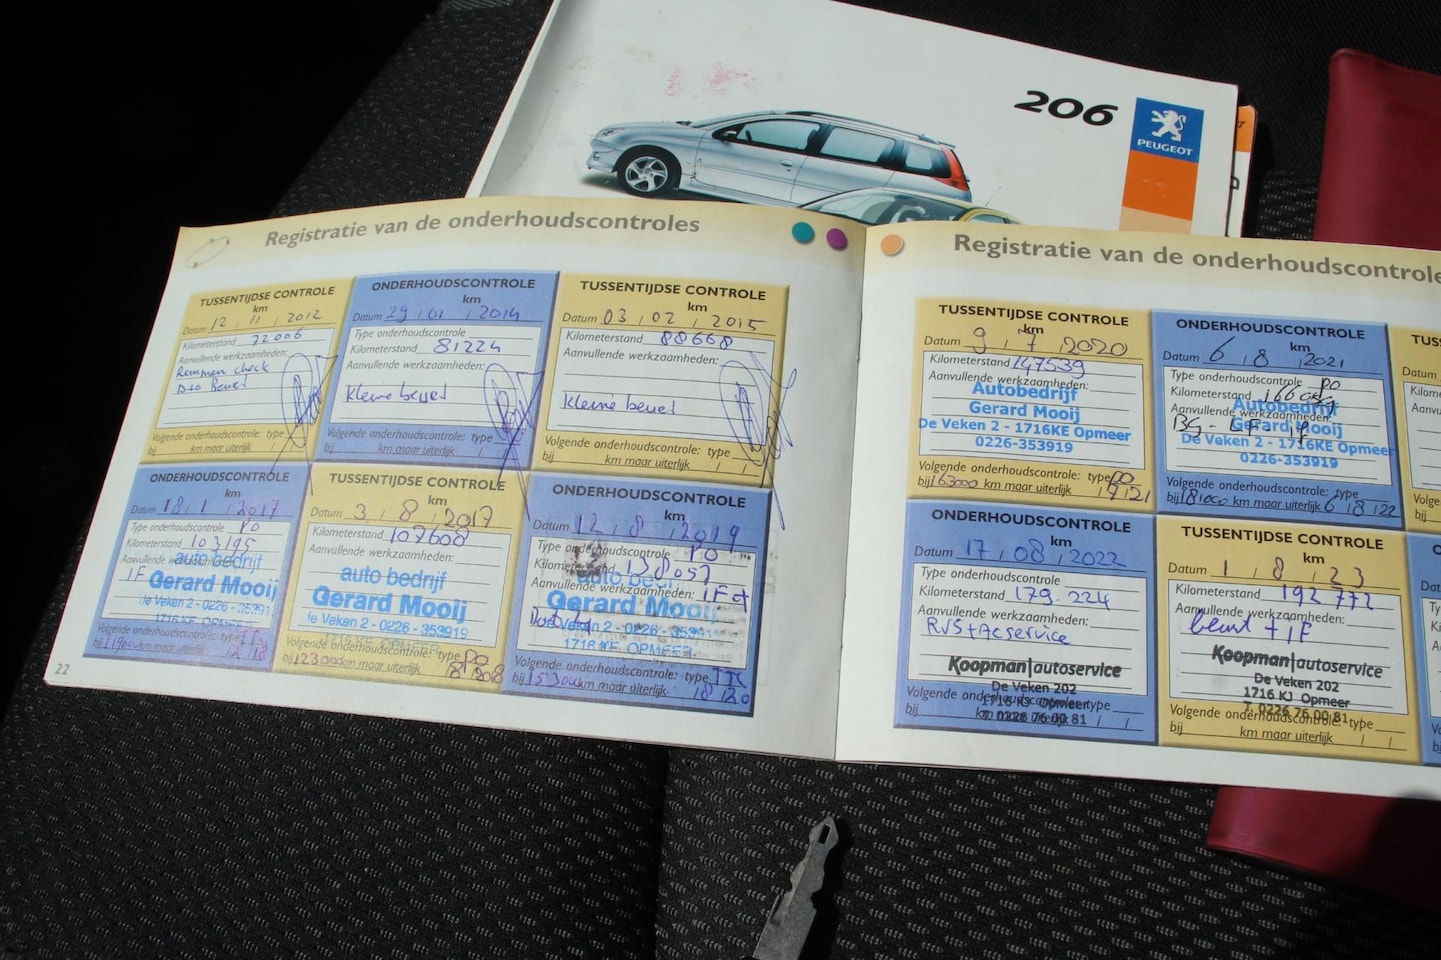 206
PEUGEOT
Registratie van de onderhoudscontroles
TUSSENTIJDSE CONTROLE
km
Datum 12 / 11 / 2012
Kilometerstand 72006
Aanvullende werkzaamheden:
Remmen check
Volgende onderhoudscontrole: type
km maar uiterlijk / /
ONDERHOUDSCONTROLE
km
Datum 29 / 01 / 2014
Type onderhoudscontrole
Kilometerstand 81224
Aanvullende werkzaamheden:
kleine beurt
Volgende onderhoudscontrole: type
bij km maar uiterlijk / /
TUSSENTIJDSE CONTROLE
km
Datum 03 / 02 / 2015
Kilometerstand 88668
Aanvullende werkzaamheden:
kleine beurt
Volgende onderhoudscontrole: type
bij km maar uiterlijk / /
ONDERHOUDSCONTROLE
km
Datum 18 / 1 / 2017
Type onderhoudscontrole PO
Kilometerstand 103195
Aanvullende werkzaamheden:
IF
auto bedrijf
Gerard Mooij
de Veken 2 - 0226 - 353919
1716 KE OPMEER
Volgende onderhoudscontrole: type
bij km maar uiterlijk
TUSSENTIJDSE CONTROLE
km
Datum 3 / 8 / 2017
Kilometerstand 107608
Aanvullende werkzaamheden:
auto bedrijf
Gerard Mooij
de Veken 2 - 0226 - 353919
1716 KE OPMEER
Volgende onderhoudscontrole: type PO
bij 123000 km maar uiterlijk 8 / 2018
ONDERHOUDSCONTROLE
km
Datum 12 / 8 / 2019
Type onderhoudscontrole PO
Kilometerstand 138057
Aanvullende werkzaamheden: IF+
auto bedrijf
Gerard Mooij
de Veken 2 - 0226 - 353919
1716 KE OPMEER
Volgende onderhoudscontrole: type
bij 153000 km maar uiterlijk / 8 / 20
22
Registratie van de onderhoudscontrole
TUSSENTIJDSE CONTROLE
km
Datum 9 / 7 / 2020
Kilometerstand 147539
Aanvullende werkzaamheden:
Autobedrijf
Gerard Mooij
De Veken 2 - 1716KE Opmeer
0226-353919
Volgende onderhoudscontrole: type PO
bij 163000 km maar uiterlijk / 9 / 21
ONDERHOUDSCONTROLE
km
Datum 6 / 8 / 2021
Type onderhoudscontrole PO
Kilometerstand
Aanvullende werkzaamheden:
Autobedrijf
Gerard Mooij
De Veken 2 - 1716KE Opmeer
0226-353919
Volgende onderhoudscontrole: type
bij 181000 km maar uiterlijk 6 / 8 / 22
ONDERHOUDSCONTROLE
km
Datum 17 / 08 / 2022
Type onderhoudscontrole
Kilometerstand 179.224
Aanvullende werkzaamheden:
RVS + Ac service
Koopman|autoservice
De Veken 202
1716 KJ Opmeer
T. 0226 76 00 81
Volgende onderhoudscontrole: type
bij km maar uiterlijk / /
TUSSENTIJDSE CONTROLE
km
Datum 1 / 8 / 23
Kilometerstand 192 772
Aanvullende werkzaamheden:
beurt + IF
Koopman|autoservice
De Veken 202
1716 KJ Opmeer
T. 0226 76 00 81
Volgende onderhoudscontrole: type
bij km maar uiterlijk / /